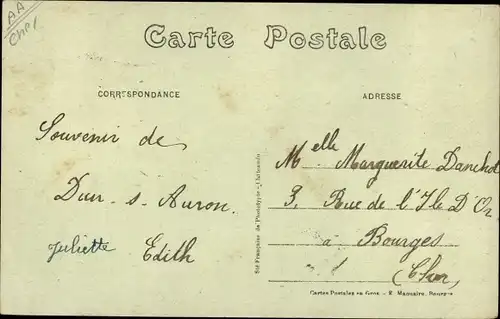 AA
Cher
Carte Postale
CORRESPONDANCE
ADRESSE
Souvenir de
Dun-s-Auron.
Juliette Edith
Melle Marguerite Danchot
3, Rue de l'Ile D'Or
à Bourges
Cher
Sté Française de Phototypie - Châteaudun
Cartes Postales en Gros - E. Maquaire, Bourges